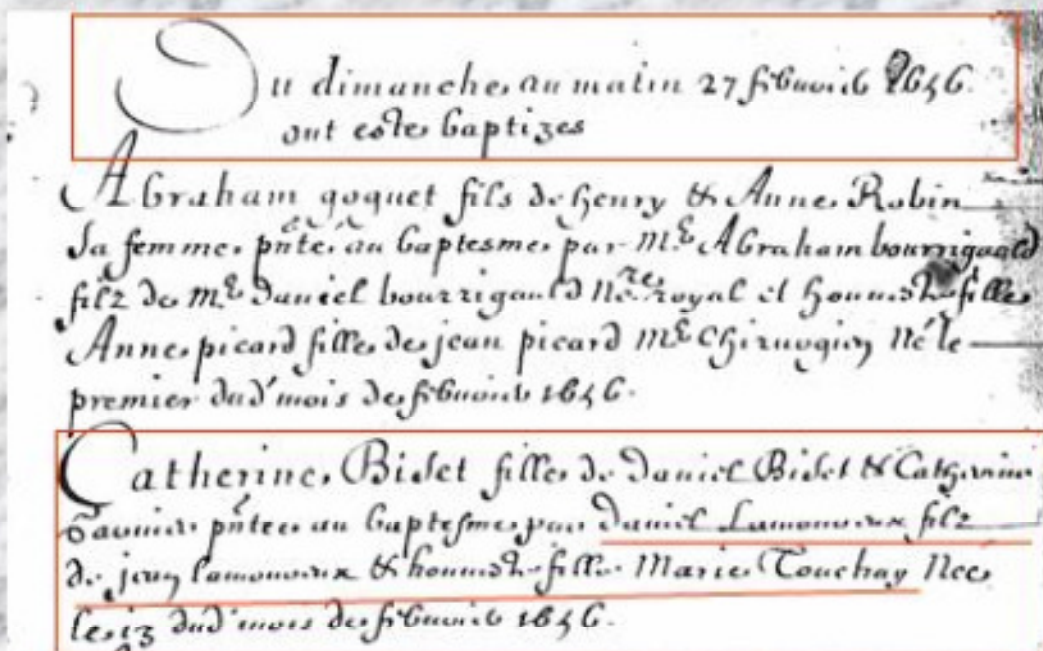 Du dimanche au matin 27 febvrier 1656.
ont estes baptizes
Abraham goquet fils de henry & Anne Robin
sa femme pñte au baptesme par Mᵉ Abraham bourrigauld
filz de Mᵉ daniel bourrigauld Nᵒʳᵉ royal et honneste fille
Anne picard fille de jean picard Mᵉ Chirurgien Né le
premier dud' mois de febvrier 1656.
Catherine Bidet fille de daniel Bidet & Catherine
pñtee au baptesme par daniel Lamoureux filz
de jean lamoureux & honneste fille Marie Touchay Nee
le 13 dud' mois de febvrier 1656.